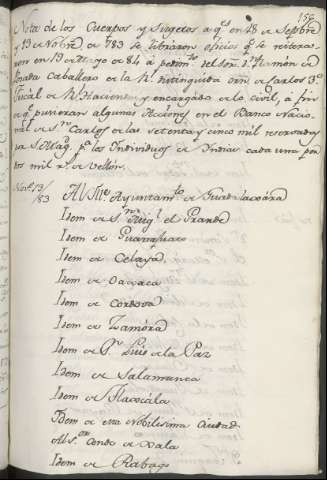 156
Nota de los Cuerpos y Sugetos a q.s en 18 de Septbre
y 19 de Nobre. de 783 se libraron oficios q.e se reitera-
ron en 19 de Mayo de 84 á pedim.to del Señor D.n Ramón de
Posada Caballero de la R.l distinguida orn. de Carlos 3.º
Fiscal de R.l Hacienda y encargado de lo civil, á fin
de q.e pusieran algunas Acciones en el Banco Nacio-
nal de S.n Carlos de las setenta y cinco mil reservadas
pa S. Mag. p.a los Individuos de Indias cada una por
dos mil r.s de Vellón.
Nov.e 13/83
Al Ille Ayuntam.to de Guadalaxára
Idem de S.n Mig.l el Grande
Idem de Guanajuato
Idem de Celaya
Idem de Oaxaca
Idem de Cordova
Idem de Zamóra
Idem de S.n Luis de la Paz
Idem de Salamanca
Idem de Tlaxcála
Idem de esta Nobilisima Ciudad
Al S.or Conde de Xala
Idem de Rabago